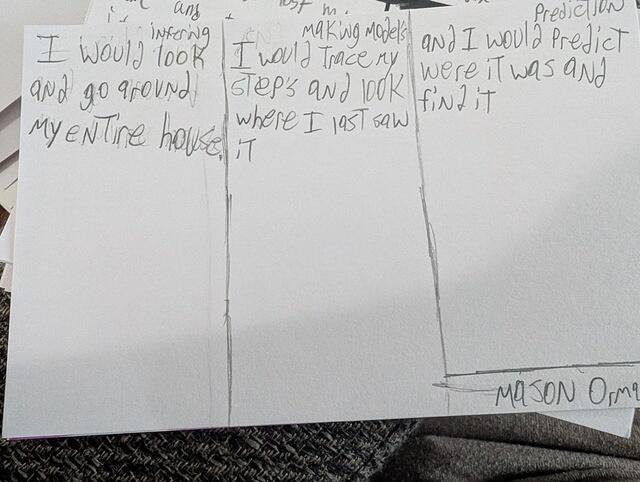 and
infering
I would look
and go around
my entire house.
making models
I would trace my
step's and look
where I last saw
it
Prediction
and I would Predict
were it was and
find it
Mason